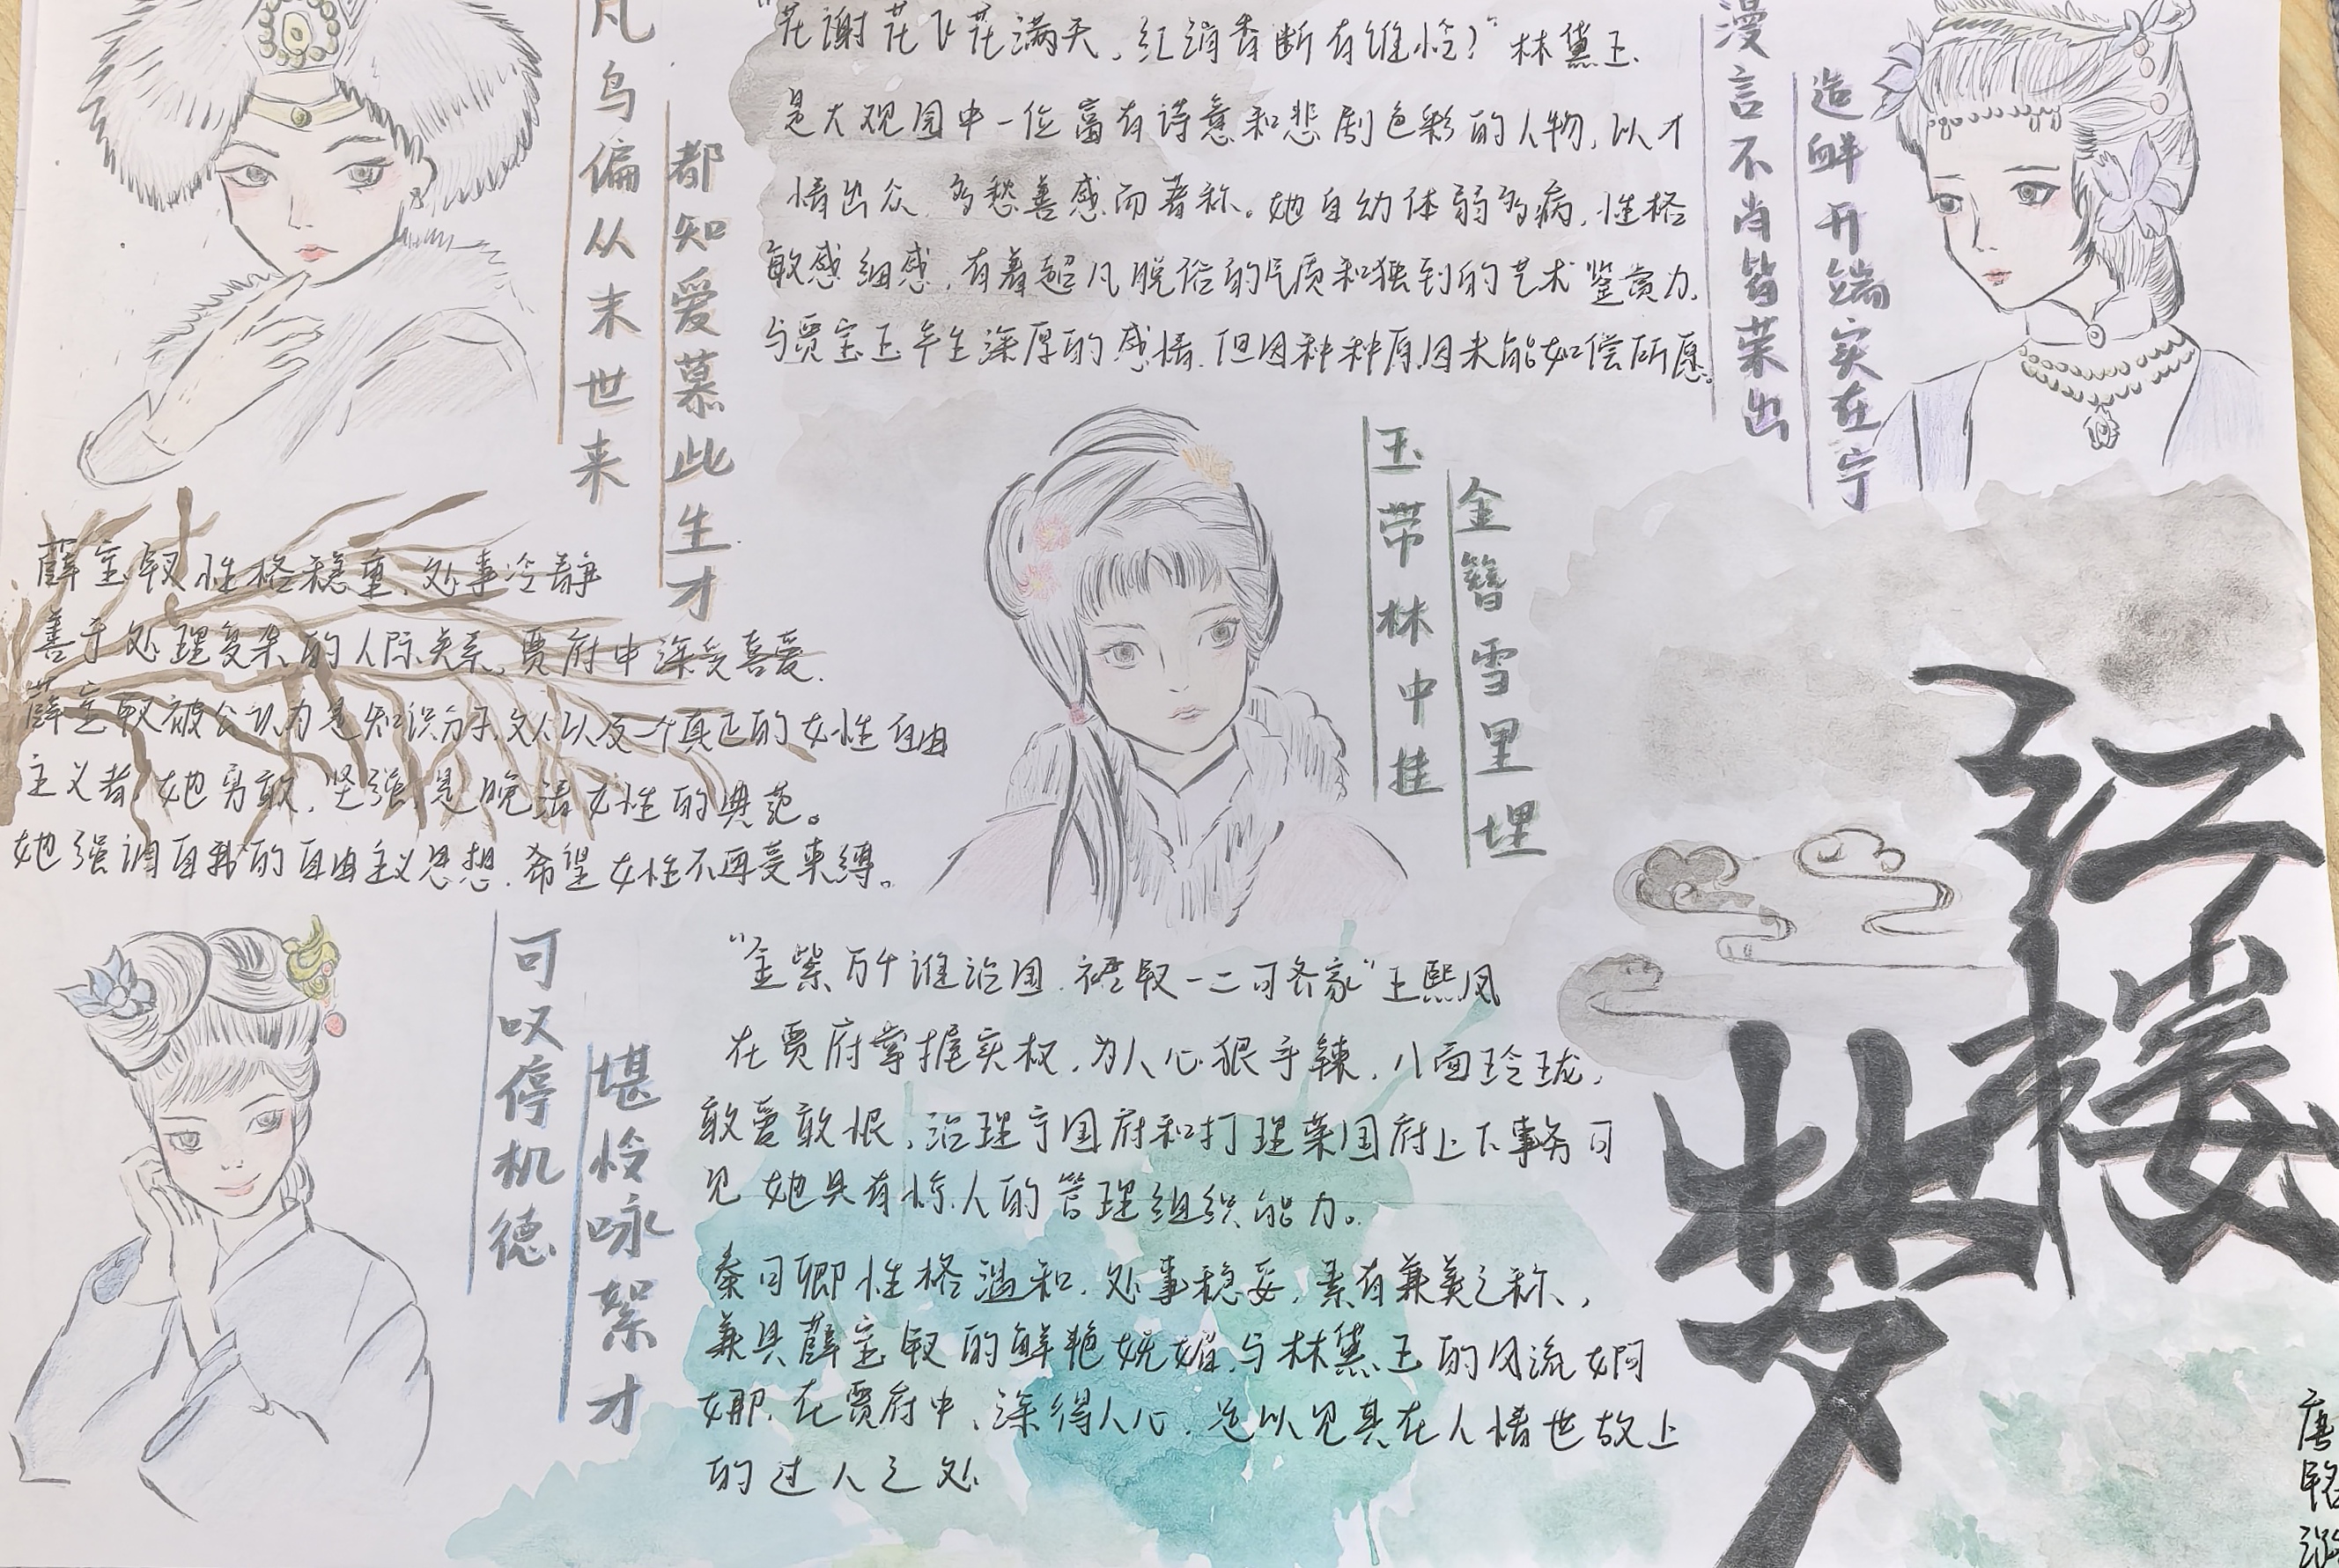 凡鸟偏从末世来
都知爱慕此生才
"花谢花飞花满天，红消香断有谁怜？"林黛玉
是大观园中一位富有诗意和悲剧色彩的人物，以才
情出众，多愁善感而著称。她自幼体弱多病，性格
敏感细感，有着超凡脱俗的气质和独到的艺术鉴赏力，
与贾宝玉产生深厚的感情，但因种种原因未能如偿所愿。
漫言不肖皆荣出
造衅开端实在宁
玉带林中挂
金簪雪里埋
薛宝钗性格稳重，处事冷静
善于处理复杂的人际关系，贾府中深受喜爱，
薛宝钗被公认为是知识分子，文人以及一个真正的女性自由
主义者，她勇敢，坚强，是晚清女性的典范。
她强调自我的自由主义思想，希望女性不再受束缚。
可叹停机德
堪怜咏絮才
"金紫万千谁治国，裙钗一二可齐家"王熙凤
在贾府掌握实权，为人心狠手辣，八面玲珑，
敢爱敢恨，治理宁国府和打理荣国府上下事务可
见她具有惊人的管理组织能力。
秦可卿性格温和，处事稳妥，素有兼美之称，
兼具薛宝钗的鲜艳妩媚，与林黛玉的风流婀
娜，在贾府中，深得人心，足以见其在人情世故上
的过人之处
红楼梦
唐